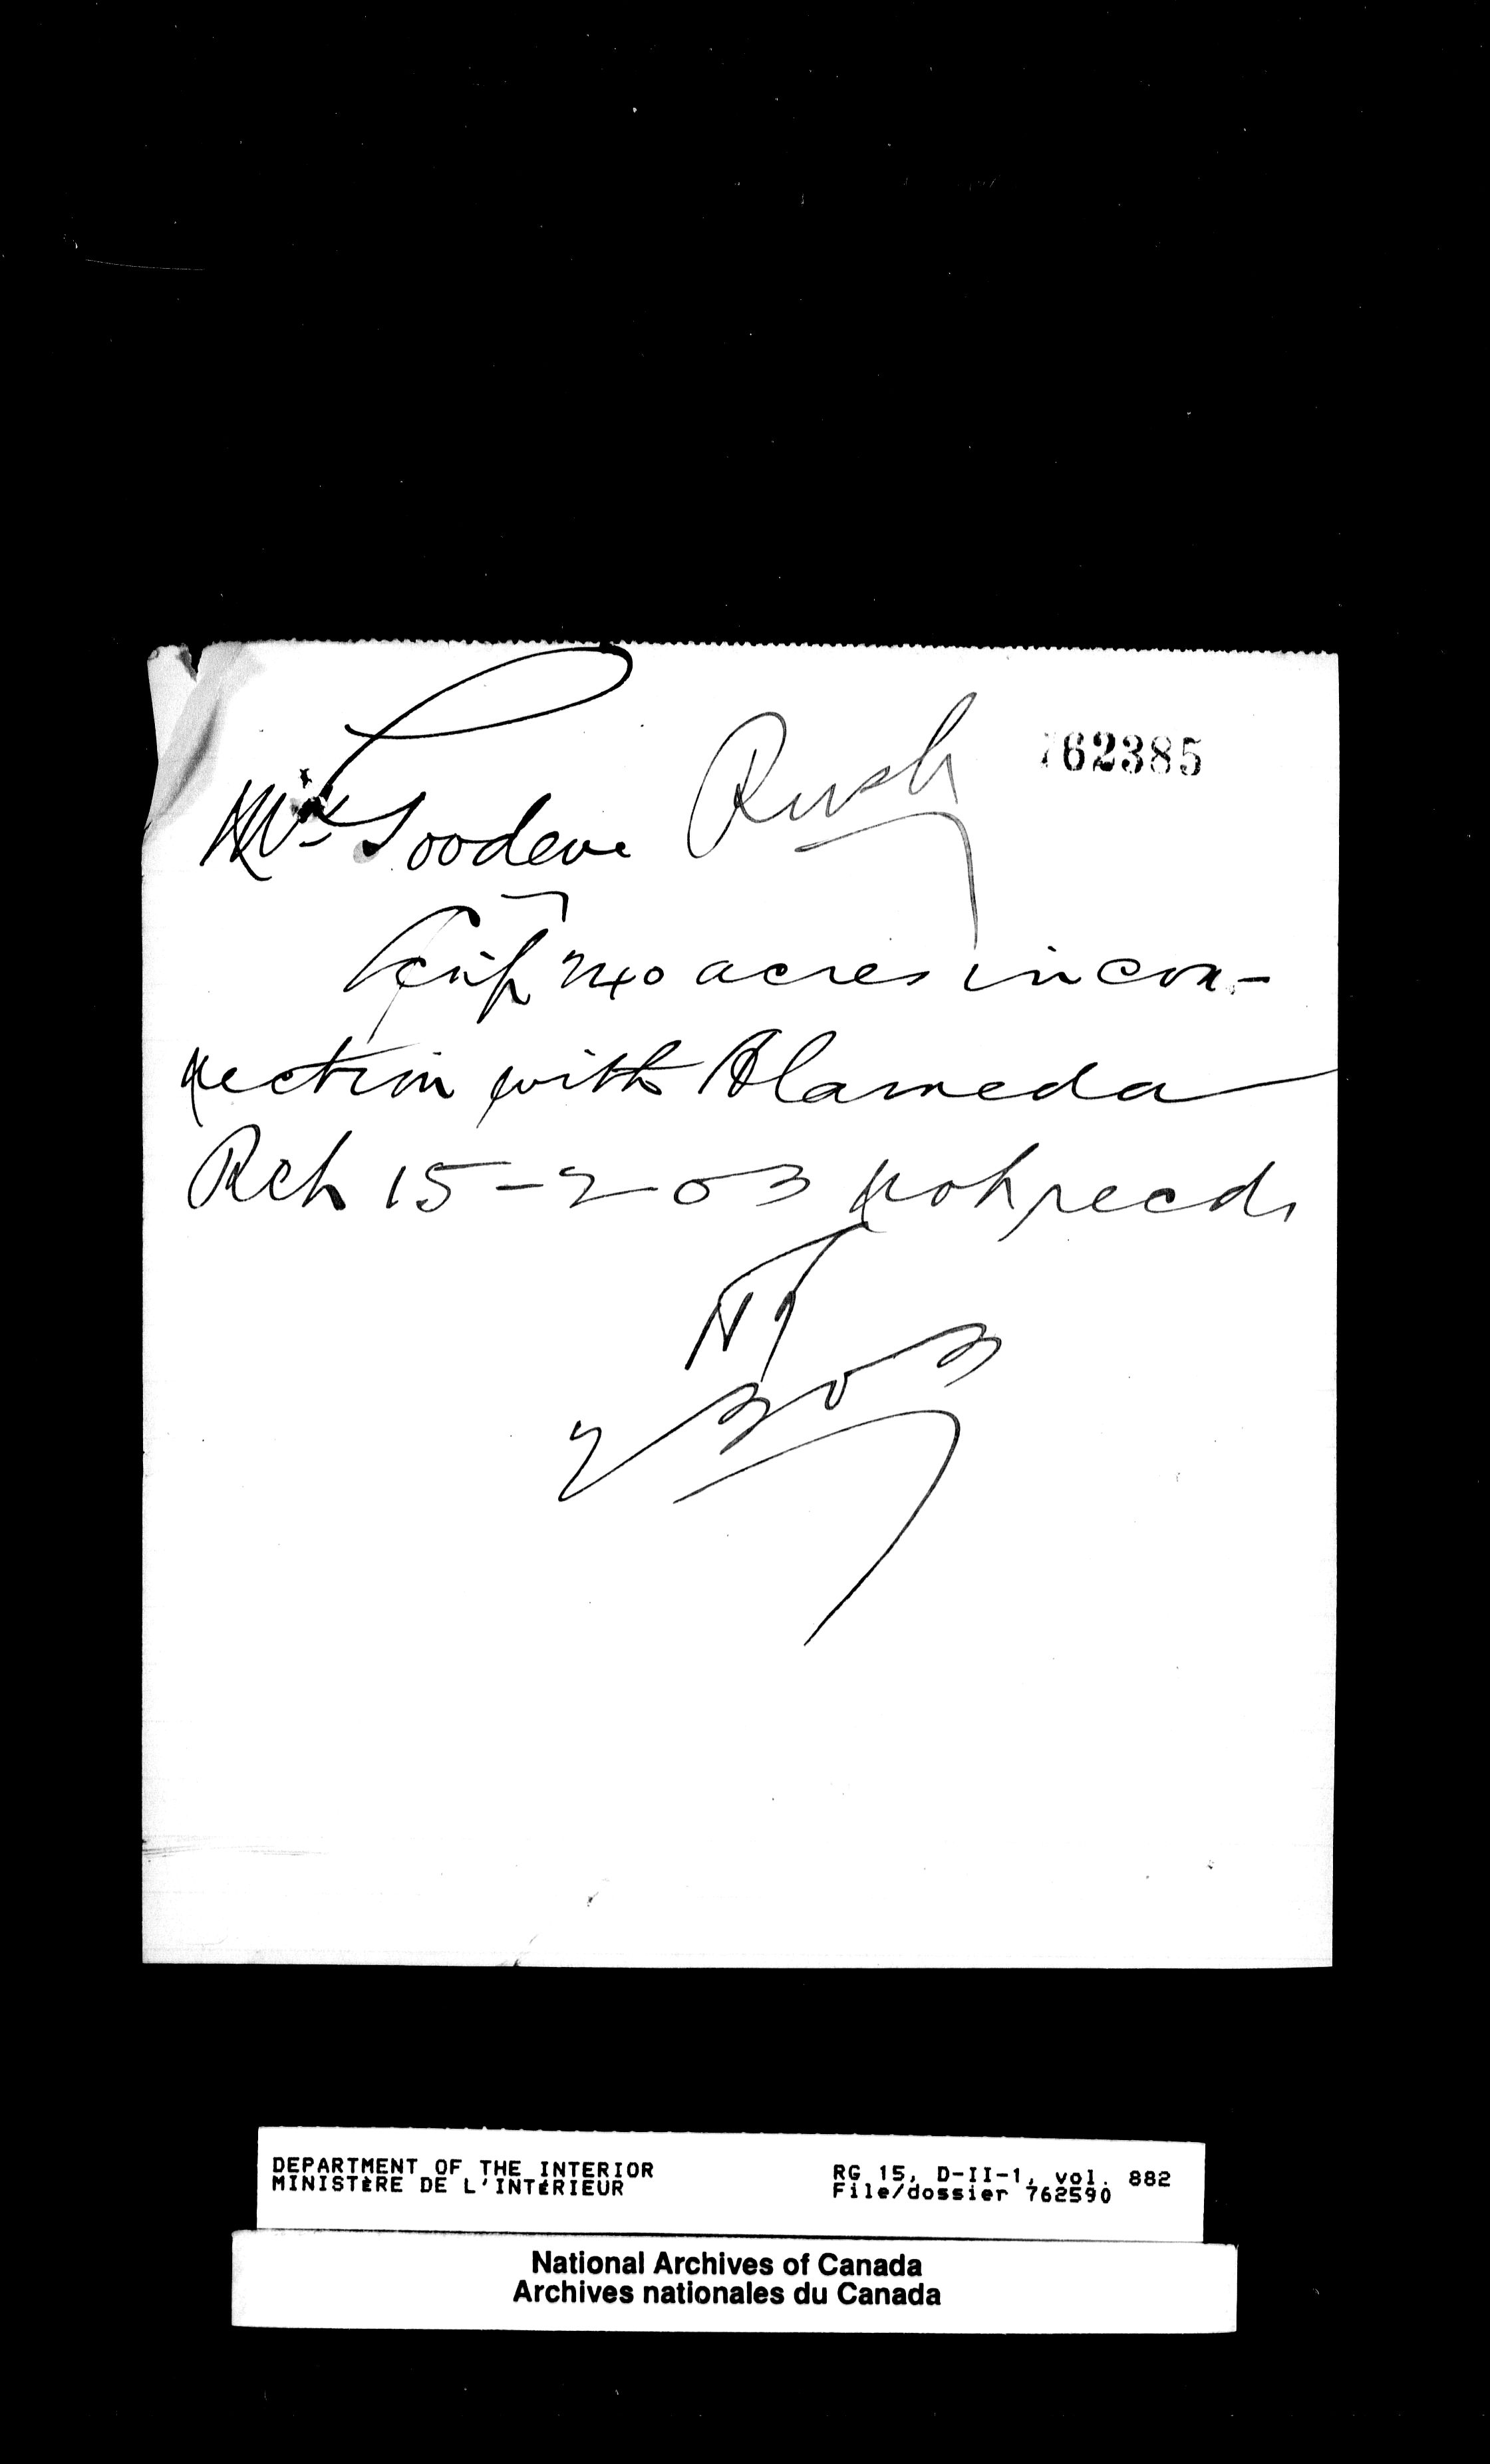 Rush
762385
Mr Goodeve
Scrip 240 acres in con-
nection with Alameda
Rch 15-2-03 not recd.
NJ
2/3/03
DEPARTMENT OF THE INTERIOR
MINISTÈRE DE L'INTÉRIEUR
RG 15, D-II-1, vol. 882
File/dossier 762590
National Archives of Canada
Archives nationales du Canada